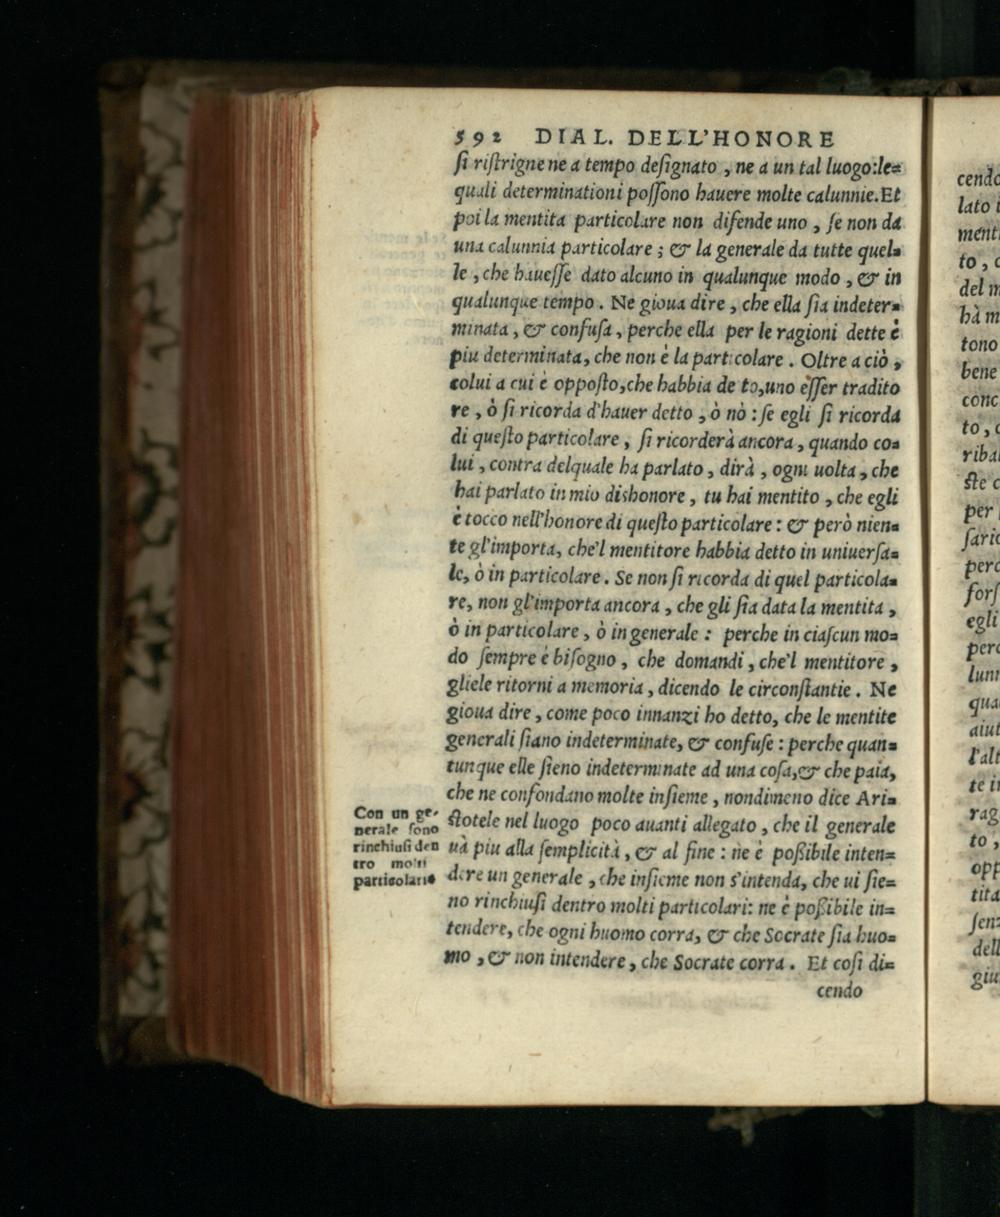 592 DIAL. DELL'HONORE
ſi riſtrigne ne a tempo deſignato, ne a un tal luogo:le=
quali determinationi poſſono hauere molte calunnie.Et
poi la mentita particolare non difende uno, ſe non da
una calunnia particolare; & la generale da tutte quel=
le, che haueſſe dato alcuno in qualunque modo, & in
qualunque tempo. Ne gioua dire, che ella ſia indeter=
minata, & confuſa, perche ella per le ragioni dette è
piu determinata, che non è la part colare. Oltre a ciò,
colui a cui è oppoſto,che habbia de to,uno eſſer tradito
re, ò ſi ricorda d'hauer detto, ò nò: ſe egli ſi ricorda
di queſto particolare, ſi ricorderà ancora, quando co=
lui, contra delquale ha parlato, dirà, ogni uolta, che
hai parlato in mio dishonore, tu hai mentito, che egli
è tocco nell'honore di queſto particolare: & però nien=
te gl'importa, che'l mentitore habbia detto in uniuerſa=
le, ò in particolare. Se non ſi ricorda di quel particola=
re, non gl'importa ancora, che gli ſia data la mentita,
ò in particolare, ò in generale: perche in ciaſcun mo=
do ſempre è biſogno, che domandi, che'l mentitore,
gliele ritorni a memoria, dicendo le circonſtantie. Ne
gioua dire, come poco innanzi ho detto, che le mentite
generali ſiano indeterminate, & confuſe: perche quan=
tunque elle ſieno indeterminate ad una coſa,& che paia,
che ne confondano molte inſieme, nondimeno dice Ari=
ſtotele nel luogo poco auanti allegato, che il generale
uà piu alla ſemplicità, & al fine: ne è poßibile inten=
dere un generale, che inſieme non s'intenda, che ui ſie=
no rinchiuſi dentro molti particolari: ne è poßibile in=
tendere, che ogni huomo corra, & che Socrate ſia huo=
mo, & non intendere, che Socrate corra. Et coſi di=
cendo
Con un ge-
nerale ſono
rinchiuſi den
tro molti
particolari
cendo
lato i
ment
to, c
del m
hà m
tono
bene
conc
to, c
ribal
ſte c
per
ſario
perc
forſ
egli
perc
lunn
qua
aiut
l'alt
te in
rag
to,
opp
tita
ſenz
dell
giu